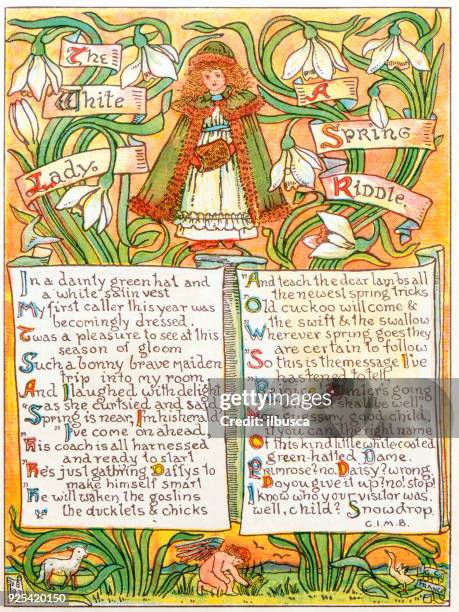 The
White
Lady.
A
Spring
Riddle.
In a dainty green hat and
a white satin vest
My first caller this year was
becomingly dressed.
Twas a pleasure to see at this
season of gloom
Such a bonny brave maiden
trip into my room
And I laughed with delight
as she curtsied and said
Spring is near, I'm his herald
I've come on ahead,
His coach is all harnessed
and ready to start
He's just gath'ring Daffys to
make himself smart
He will waken the goslins
the ducklets & chicks
"And teach the dear lambs all
the newest spring tricks
Old cuckoo will come &
the swift & the swallow
Wherever spring goes they
are certain to follow
So this is the message I've
to tell
going
shall be well"
good child
if you can the right name
Of this kind little white-coated
green-hatted Dame.
Primrose? no. Daisy? wrong,
Do you give it up? no! stop!
I know who your visitor was,
well, child? Snowdrop.
C.I.M.B.
iStock
Credit: ilbusca
925420150